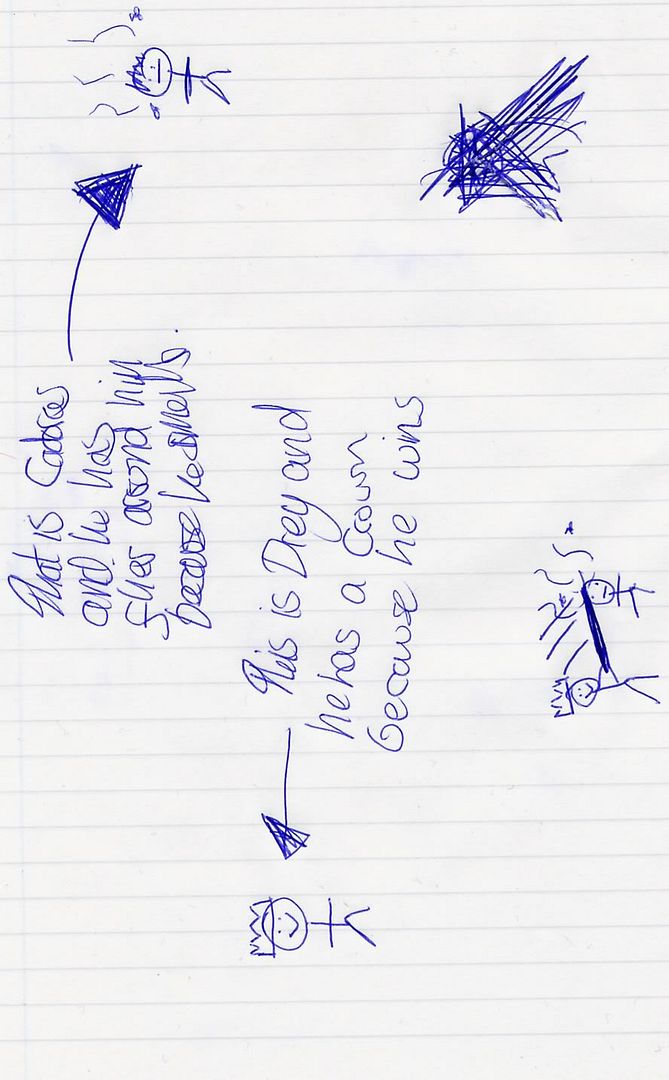 That is
and he has
flies around him
because he smells.
This is Drey and
he has a Crown
because he wins